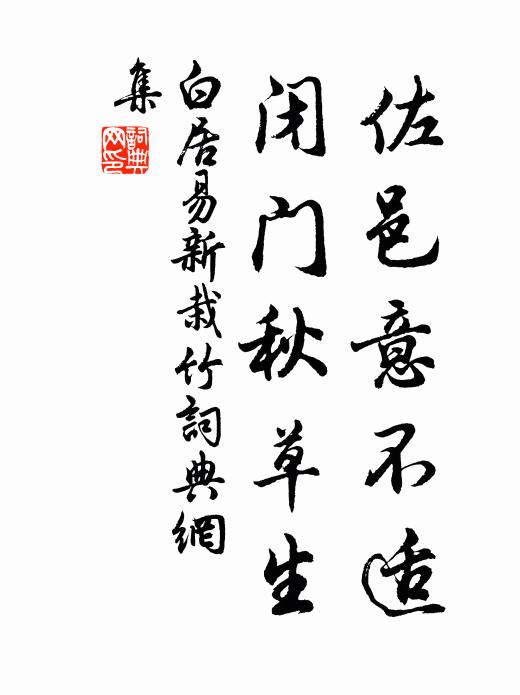 佐邑意不适
闭门秋草生
白居易新栽竹詞典網
集
詞典
网印